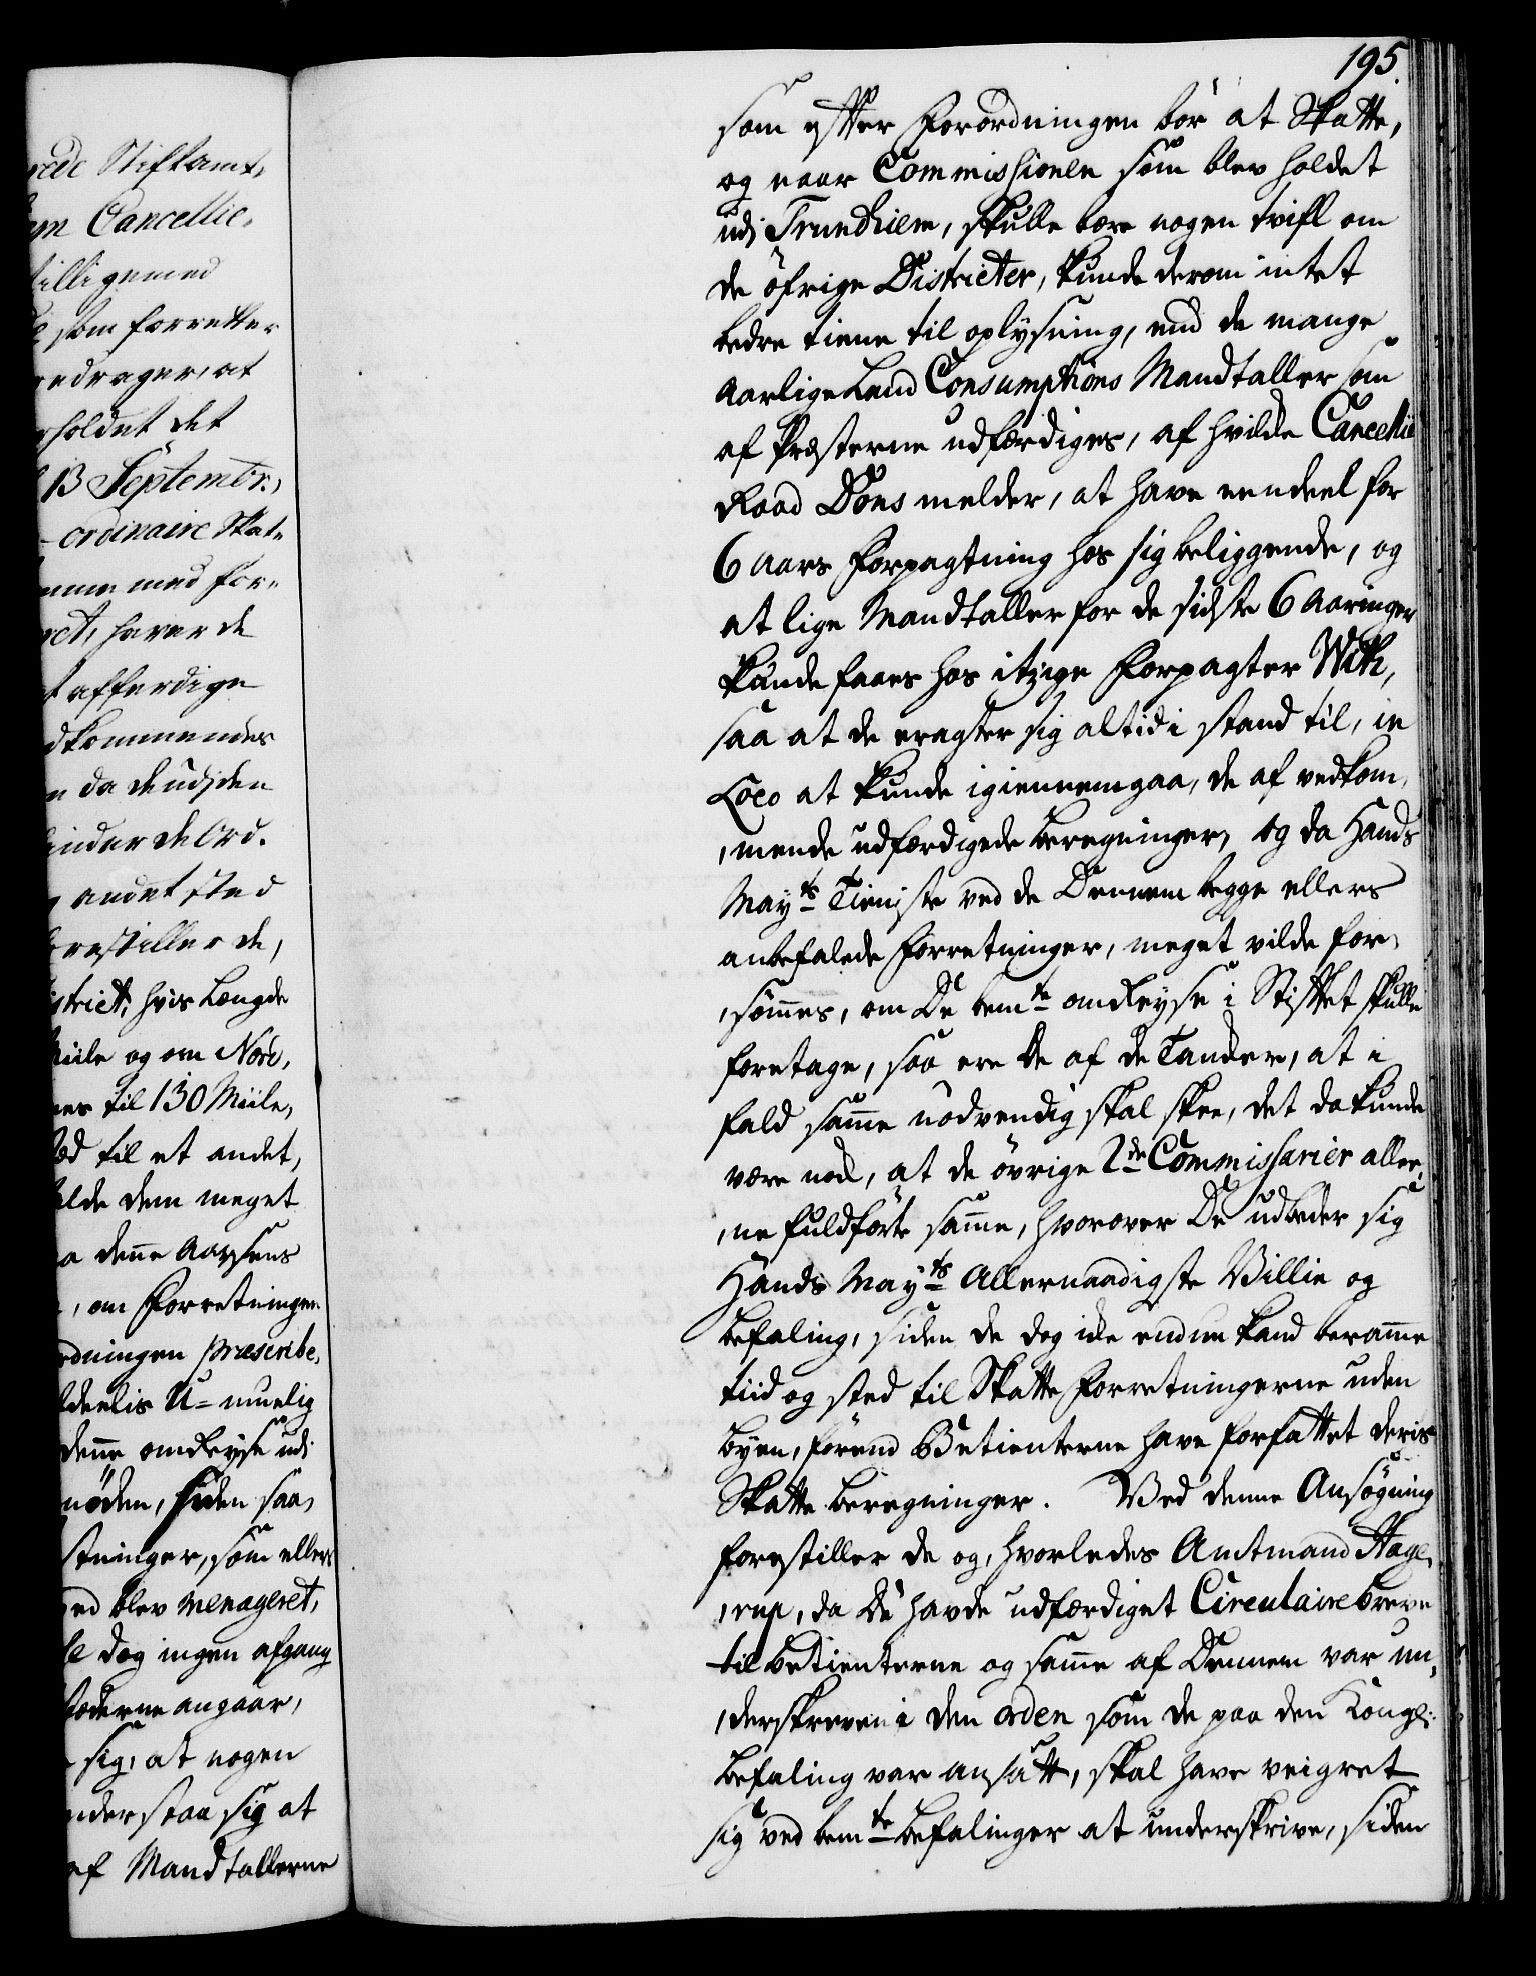 rede Stiftamt,
em Cancellie,
tilligemed
som forretter
edrager, at
rholdet det
13 Septembr.,
ordinaire Skat,
mme med for,
ret, haver de
t afferdige
dkommendes
n da de udj den
inder de Ord.
andet sted
orestiller de,
strict, hvis Længde
Miile og om Nord,
nes til 130 Miile,
ed til et andet,
olde dem meget
a denne Aarsens
, om Forretningen
rdningen præscribe,
ldeelis U-muelig
denne omreyse udi
nöden, siden saa,
stninger, som ellers
ed blev menageret,
le dog ingen afgang
æderne angaar,
sig, at nogen
nderstaa sig at
af Mandtallerne
195.
som efter Forordningen bör at Skatte,
og naar Commissionen som blev holdet
udj Trundhiem, skulle bære nogen tvifl om
de öfrige Districter, kunde derom intet
bedre tiene til oplysning, end de mange
Aarlige Land Consumptions Mandtaller som
af Præsterne udfærdiges, af hvilcke Cancellie
Raad Dons melder, at have eendeel for
6 Aars Forpagtning hos sig beliggende, og
at lige Mandtaller for de sidste 6 Aaringer
kunde faaes hos itzige Forpagter With,
saa at de eragter sig altid i stand til, in
Loco at kunde igiennemgaa, de af vedkom,
,mende udfærdigede beregninger, og da Hands
Mayts Tieniste ved de Dennem begge ellers
anbefalede Forretninger, meget vilde for,
,sömmes, om De bemte omreyse i Stiftet skulle
foretage, saa ere De af de Tancker, at i
fald samme nödvendig skal skee, det da kunde
være nok, at de övrige 2de Commissarier allee,
,ne fuldförte samme, hvorover De udbeder sig
Hands Mayts Allernaadigste Villie og
befaling, siden de dog icke endnu kand beramme
tiid og sted til Skatte Forretningerne uden
byen, förend Betienterne have forfattet deris
Skatte beregninger. Ved denne Ansögning
forestiller de og, hvorledes Amtmand Hage,
,rup, da De havde udfærdiget Circulaire breve
til betienterne og samme af Dennem var un,
,derskreven i den orden som de paa den Kongl:
befaling var ansatt, skal have veigret
sig ved bemte befalinger at underskrive, siden